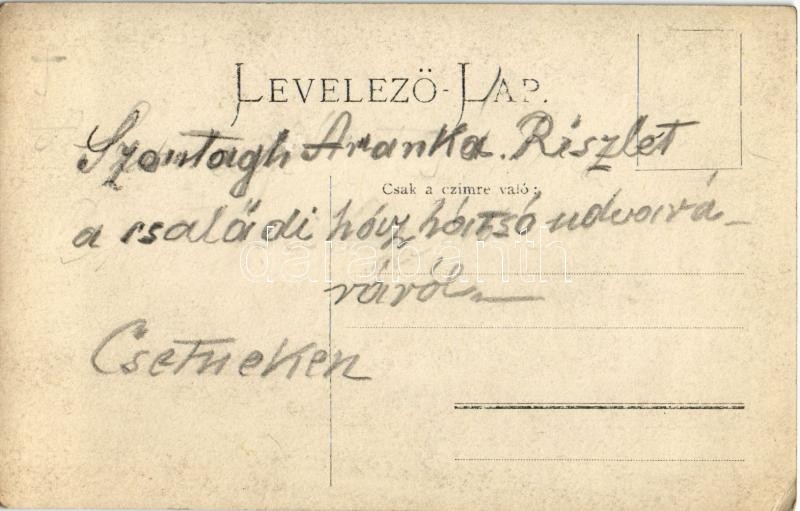 LEVELEZŐ-LAP.
Szontagh Aranka. Részlet
Csak a czimre való:
a családi ház hátsó udvará_
darabanth
ráról
Csetneken